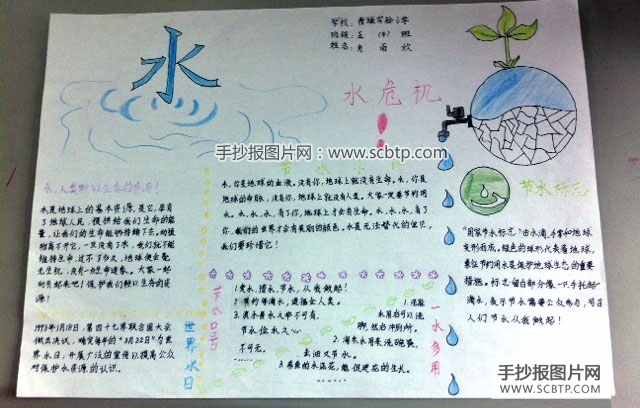 水
学校：
班级：五（4）班
姓名：
水危机
!
手抄报图片网：www.scbtp.com
水，人类赖以生存的资源！
水是地球上的基本资源，是它，孕育
了地球人民，慢拱给我们生命的能
量，让我们的生命能够持续下去。动植
物离不开它，一旦没有了水，我们就不能
维持生命，过不了多久，地球便会毫
无生机，没有一丝生命迹象。大家一起
动员起来吧！保护我们赖以生存的资
源！
1993年1月18日，第四十七届联合国大会
做出决议，确定每年的“3月22日”为世
界水日，开展广泛的宣传以提高公众
对保护水资源的认识。
世界水日
节水
水，你是地球的血液，没有你，地球上就没有生命。水，你是
地球的命脉，没有你，地球上就没有人类。大家一定要节约用
水。水，水，水，有了你，地球上才会有生命。水，水，水，有了
你，我们的世界才会有美丽的颜色。水是无法替代的世贝，
我们要珍惜它！
节水口号
1.爱水、惜水、节水，从我做起！
2.节约每滴水，造福全人类。
3.真水无人
节水位水又
不可无。
一水多用
1.洗脸
水用后可以洗
脚，然后冲厕所。
2.淘米水用来洗碗筷，
去油又节水。
3.养鱼的水浇花，能促进花的生长。
节水标志
“国家节水标志”由水滴、手掌和地球
变形而成。绿色的球形代表着地球，
象征节约用水是保护地球生态的重要
措施。标志留白部分像一只手托起一
滴水，表示节水需要公众参与，号召
人们节水从我做起！
手抄报图片网
WWW.SCBTP.COM